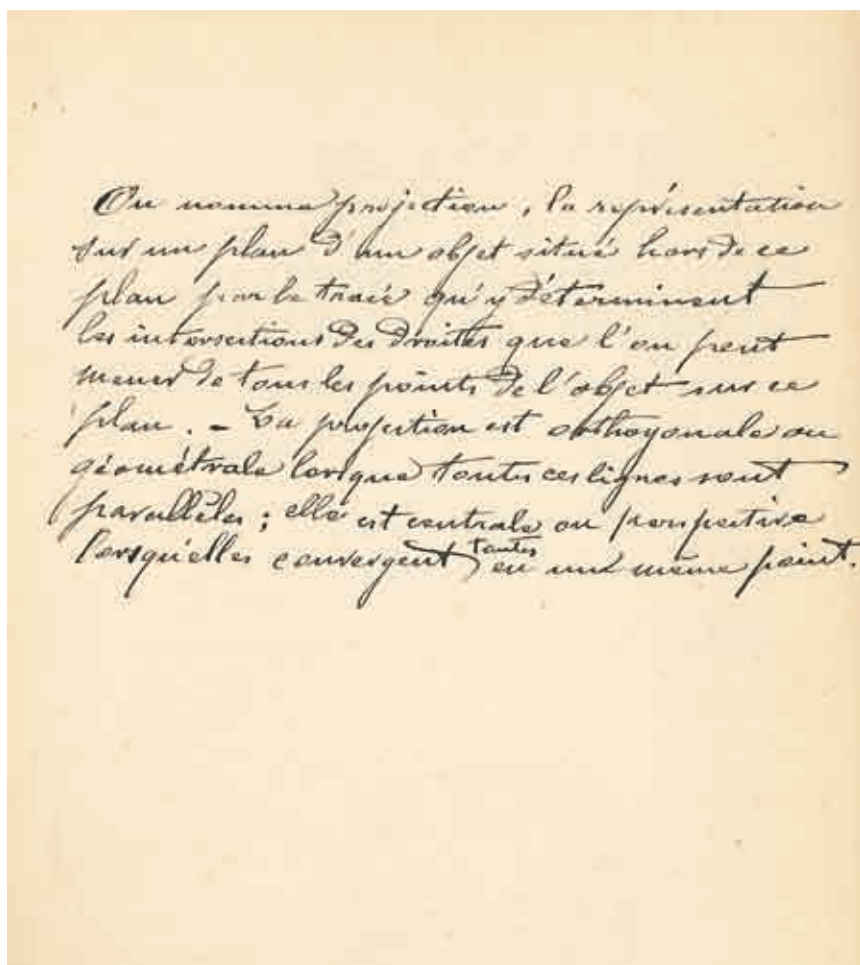 On nomme projection, la représentation
sur un plan d'un objet situé hors de ce
plan par le tracé qu'y déterminent
les intersections des droites que l'on peut
mener de tous les points de l'objet sur ce
plan. – La projection est orthogonale ou
géométrale lorsque toutes ces lignes sont
parallèles ; elle est centrale ou perspective
lorsqu'elles convergent toutes en un même point.